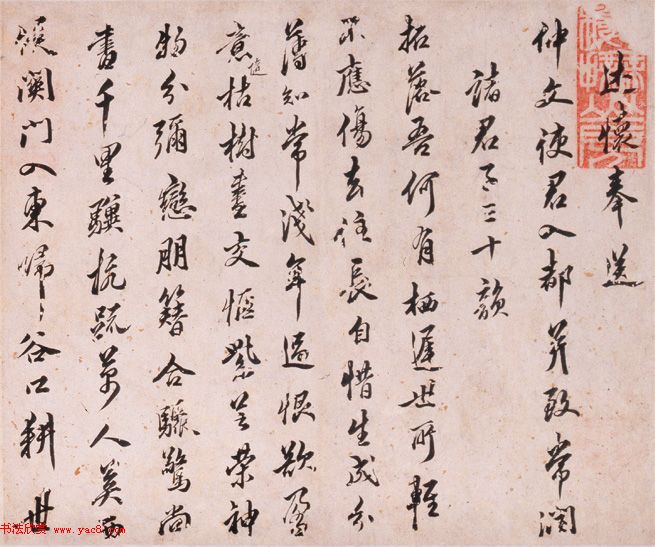 述懷奉送
仲文使君入都并致常潤
諸君子三十韻
拓落吾何有栖遲世所輕
不應傷去住長自惜生成分
薄知常淺年過恨欲盈
意枯樹盡交愜紫芝榮神
物分彌戀朋簪合驟驚尚
書千里驥杭疏萬人英西
候關門入東歸谷口耕世
书法欣赏 www.yac8.com